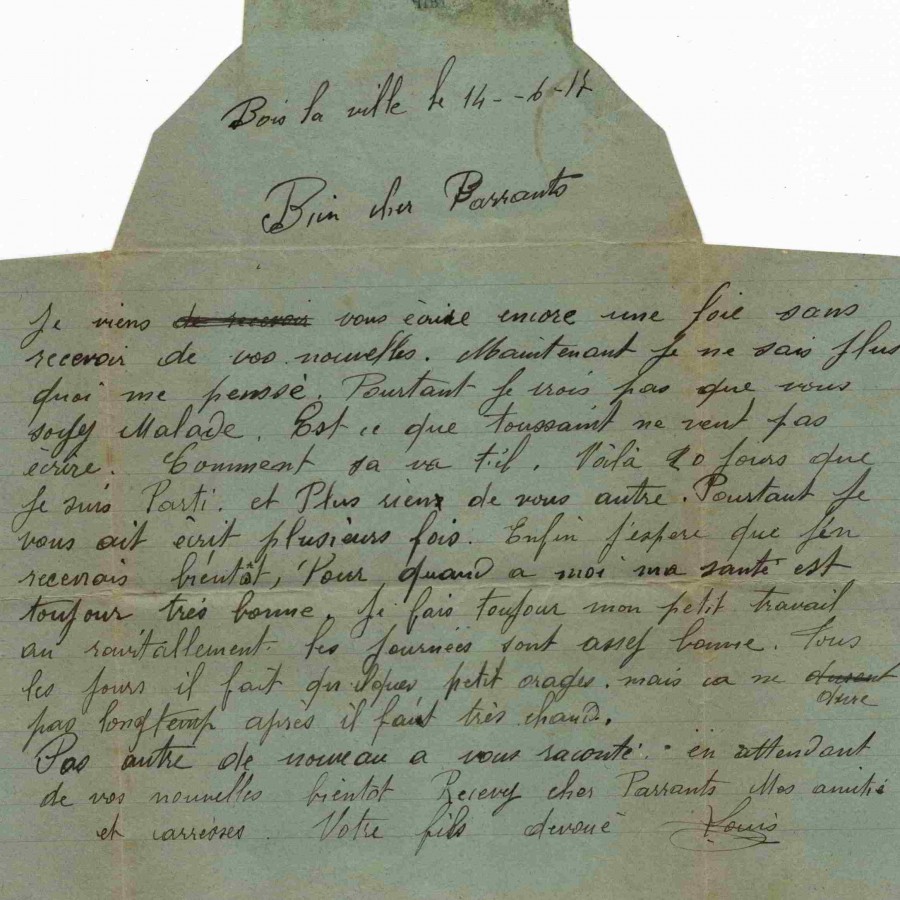 Bois la ville le 14--6-17
Bien cher Parrants
Je viens de recevoir vous écrire encore une foie sans
recevoir de vos nouvelles. Maintenant je ne sais plus
quoi me penssé. Pourtant je crois pas que vous
soyez Malade. Est ce que toussaint ne veut pas
écrire. Comment sa va t'il. Voilà 20 jours que
je suis Parti. et Plus rien de vous autre. Pourtant je
vous ait écrit plusieurs fois. Enfin j'espere que j'en
recevrais bientôt, Pour quand a moi ma santé est
toujour trés bonne. Je fais toujour mon petit travail
au ravitallement. les journées sont assez bonne. Tous
les jours il fait quelques petit orages. mais ca ne durent
dure
pas longtemp après il fait très chaud.
Pas autre de nouveau a vous raconté. en attendant
de vos nouvelles bientôt Recevez cher Parrants Mes amitié
et carresses. Votre fils devoué Louis